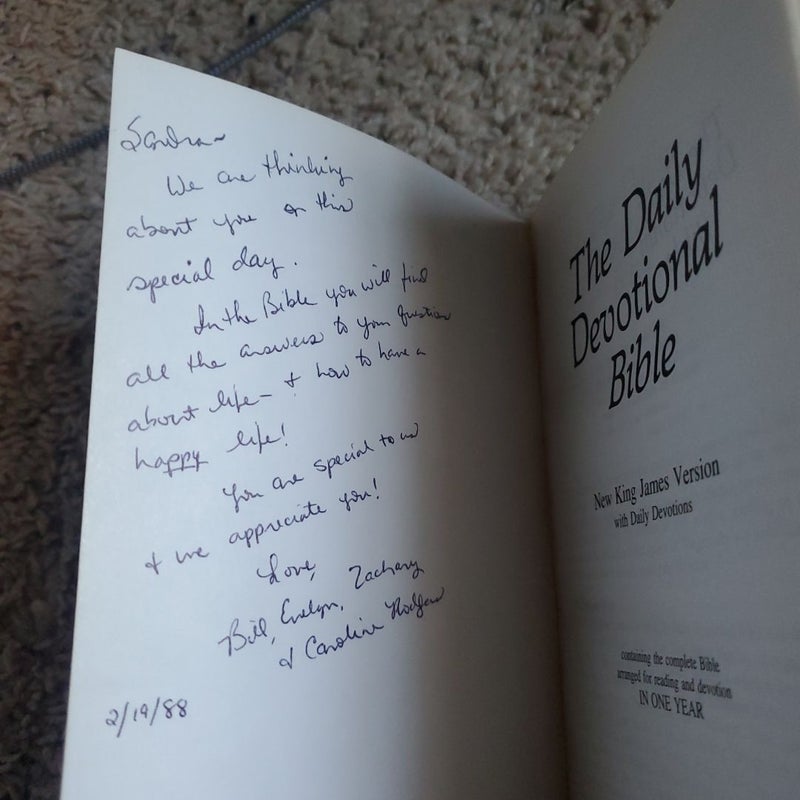 Sandra~
We are thinking
about you on this
special day.
In the Bible you will find
all the answers to your question
about life - & how to have a
happy life!
You are special to us
& we appreciate you!
Love,
Bill, Evelyn, Zachary
& Caroline Rodgers
2/19/88
The Daily
Devotional
Bible
New King James Version
with Daily Devotions
containing the complete Bible
arranged for reading and devotion
IN ONE YEAR